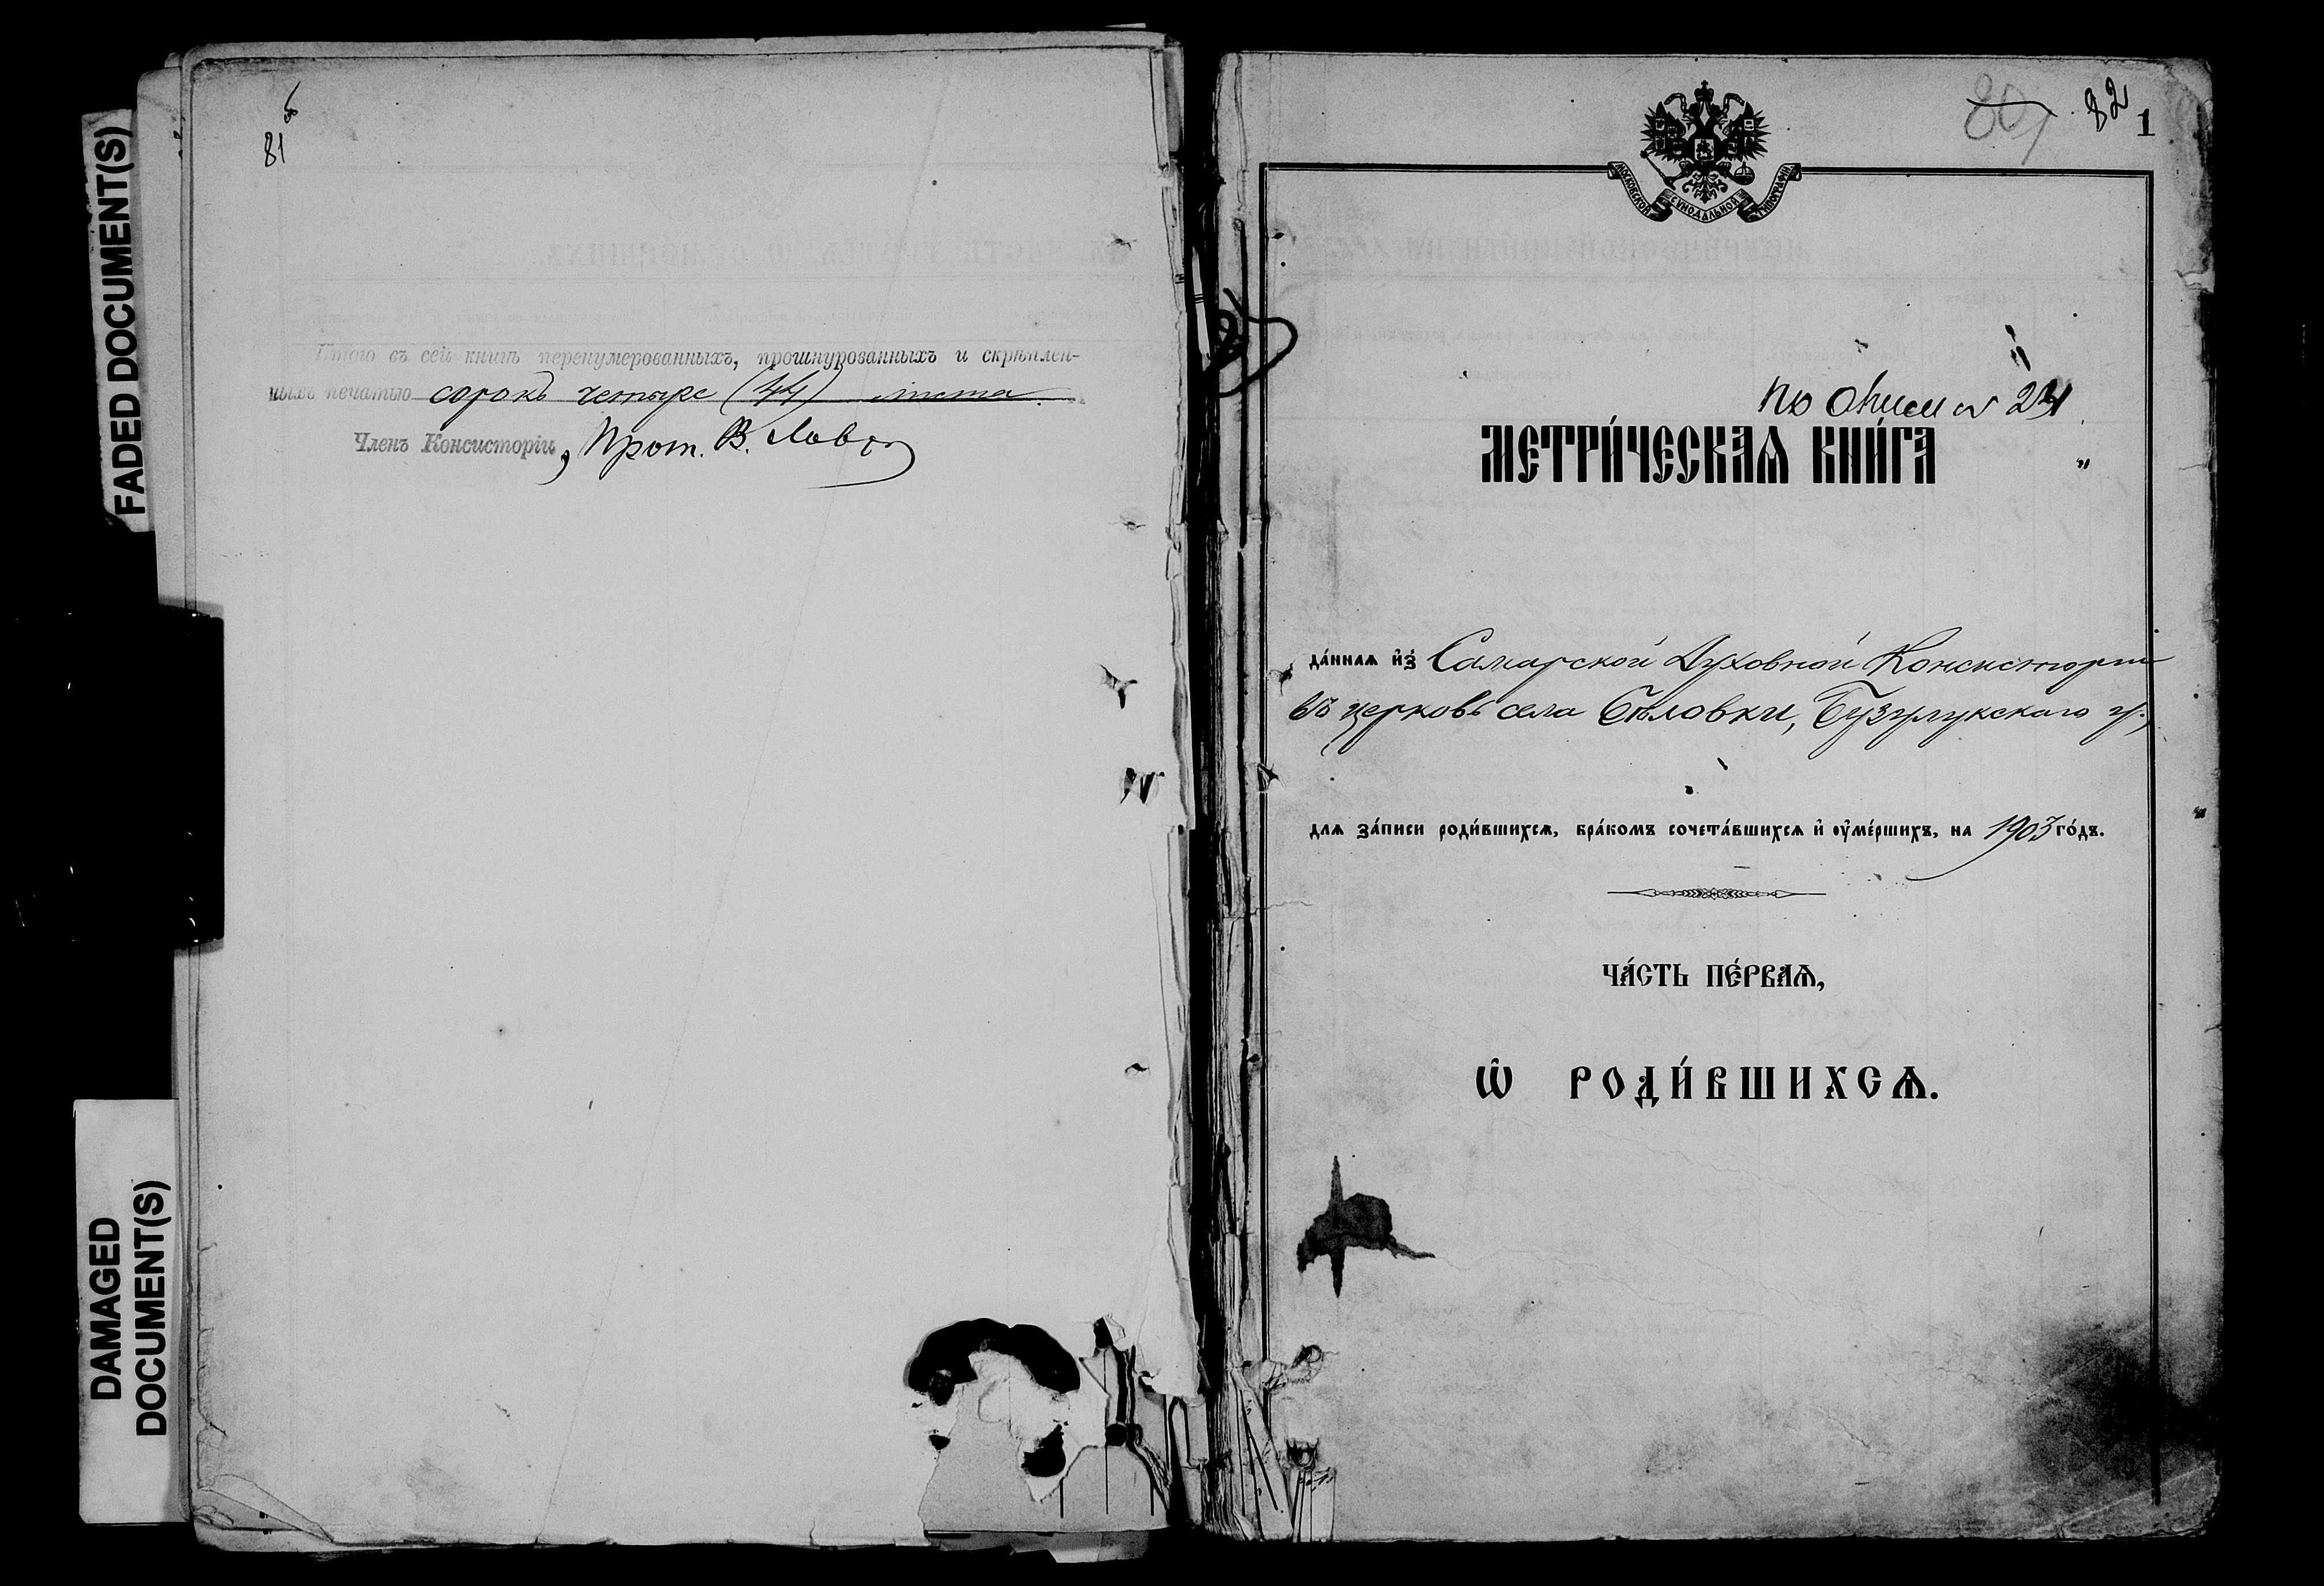 FADED DOCUMENT(S)
DAMAGED
DOCUMENT(S)
81 б
Итого въ сей книгѣ перенумерованныхъ, прошнурованныхъ и скрѣплен-
ныхъ печатью сорокъ четыре (44) листа.
Членъ Консисторіи, Прот. В. Лавр
80 82 1
МОСКОВСКОЙ СѴНОДАЛЬНОЙ ТИПОГРАФІИ
по описи № 24
МЕТРИ́ЧЕСКАѦ КНИ́ГА
да́ннаѧ и҆з̾ Самарской Духовной Консисторіи
въ церковь села Бѣловки, Бузулукскаго у.,
длѧ за́писи роди́вшихсѧ, бра́комъ сочета́вшихсѧ и҆ ᲂу҆ме́ршихъ, на 1903 го́дъ.
ЧА́СТЬ ПЕ́РВАѦ,
Ѽ РОДИ́ВШИХСѦ.